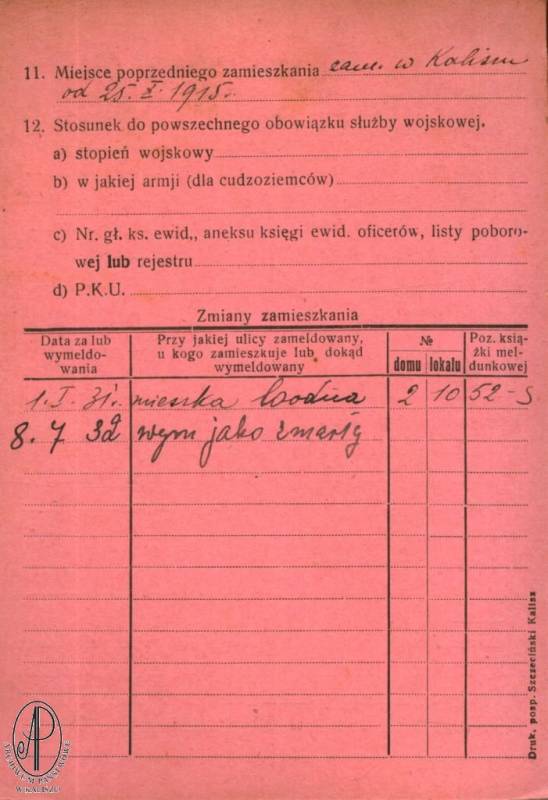 11. Miejsce poprzedniego zamieszkania zam. w Kaliszu
od 25. X. 1915.
12. Stosunek do powszechnego obowiązku służby wojskowej.
a) stopień wojskowy
b) w jakiej armji (dla cudzoziemców)
c) Nr. gł. ks. ewid,, aneksu księgi ewid. oficerów, listy poboro-
wej lub rejestru
d) P.K.U.
Zmiany zamieszkania
Data za lub wymeldo- wania Przy jakiej ulicy zameldowany, u kogo zamieszkuje lub dokąd wymeldowany № domu lokalu Poz. ksią- żki mel- dunkowej
1. I. 31. mieszka 2 10 52-
8. 7 32 wym jako zmarły
Druk. posp. Szczeciński Kalisz
AP
ARCHIWUM PAŃSTWOWE
W KALISZU